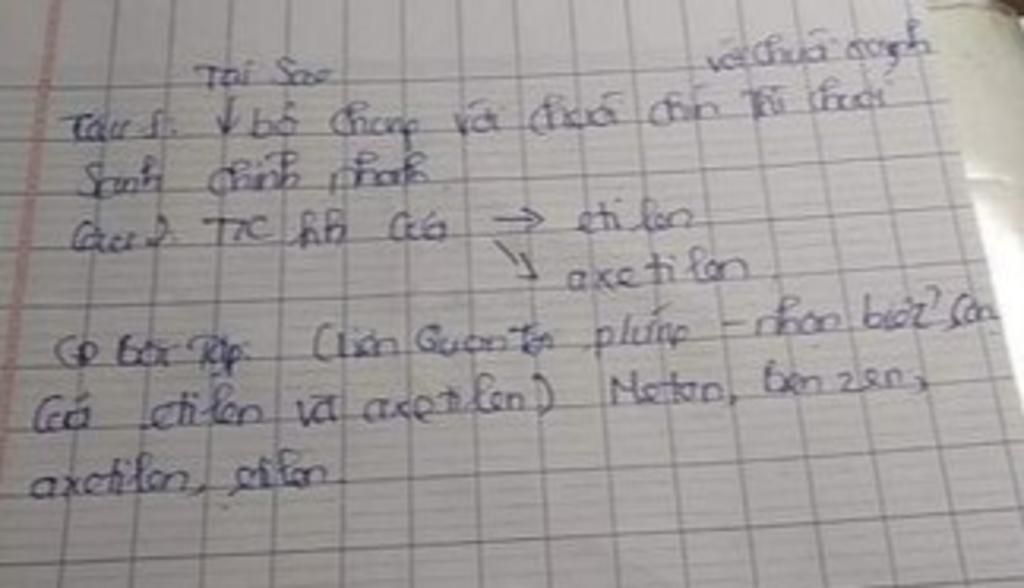 Tại Sao với chuối xanh
Câu 1: ↓ bỏ chung với chuối chín thì chuối
Sanh chính nhanh
Câu 2. TTC hh Có → etilen
↘ axetilen
Bài Tập (liên Quan nhận biết?
Có etilen và axetilen) Metan, benzen,
axetilen, etilen